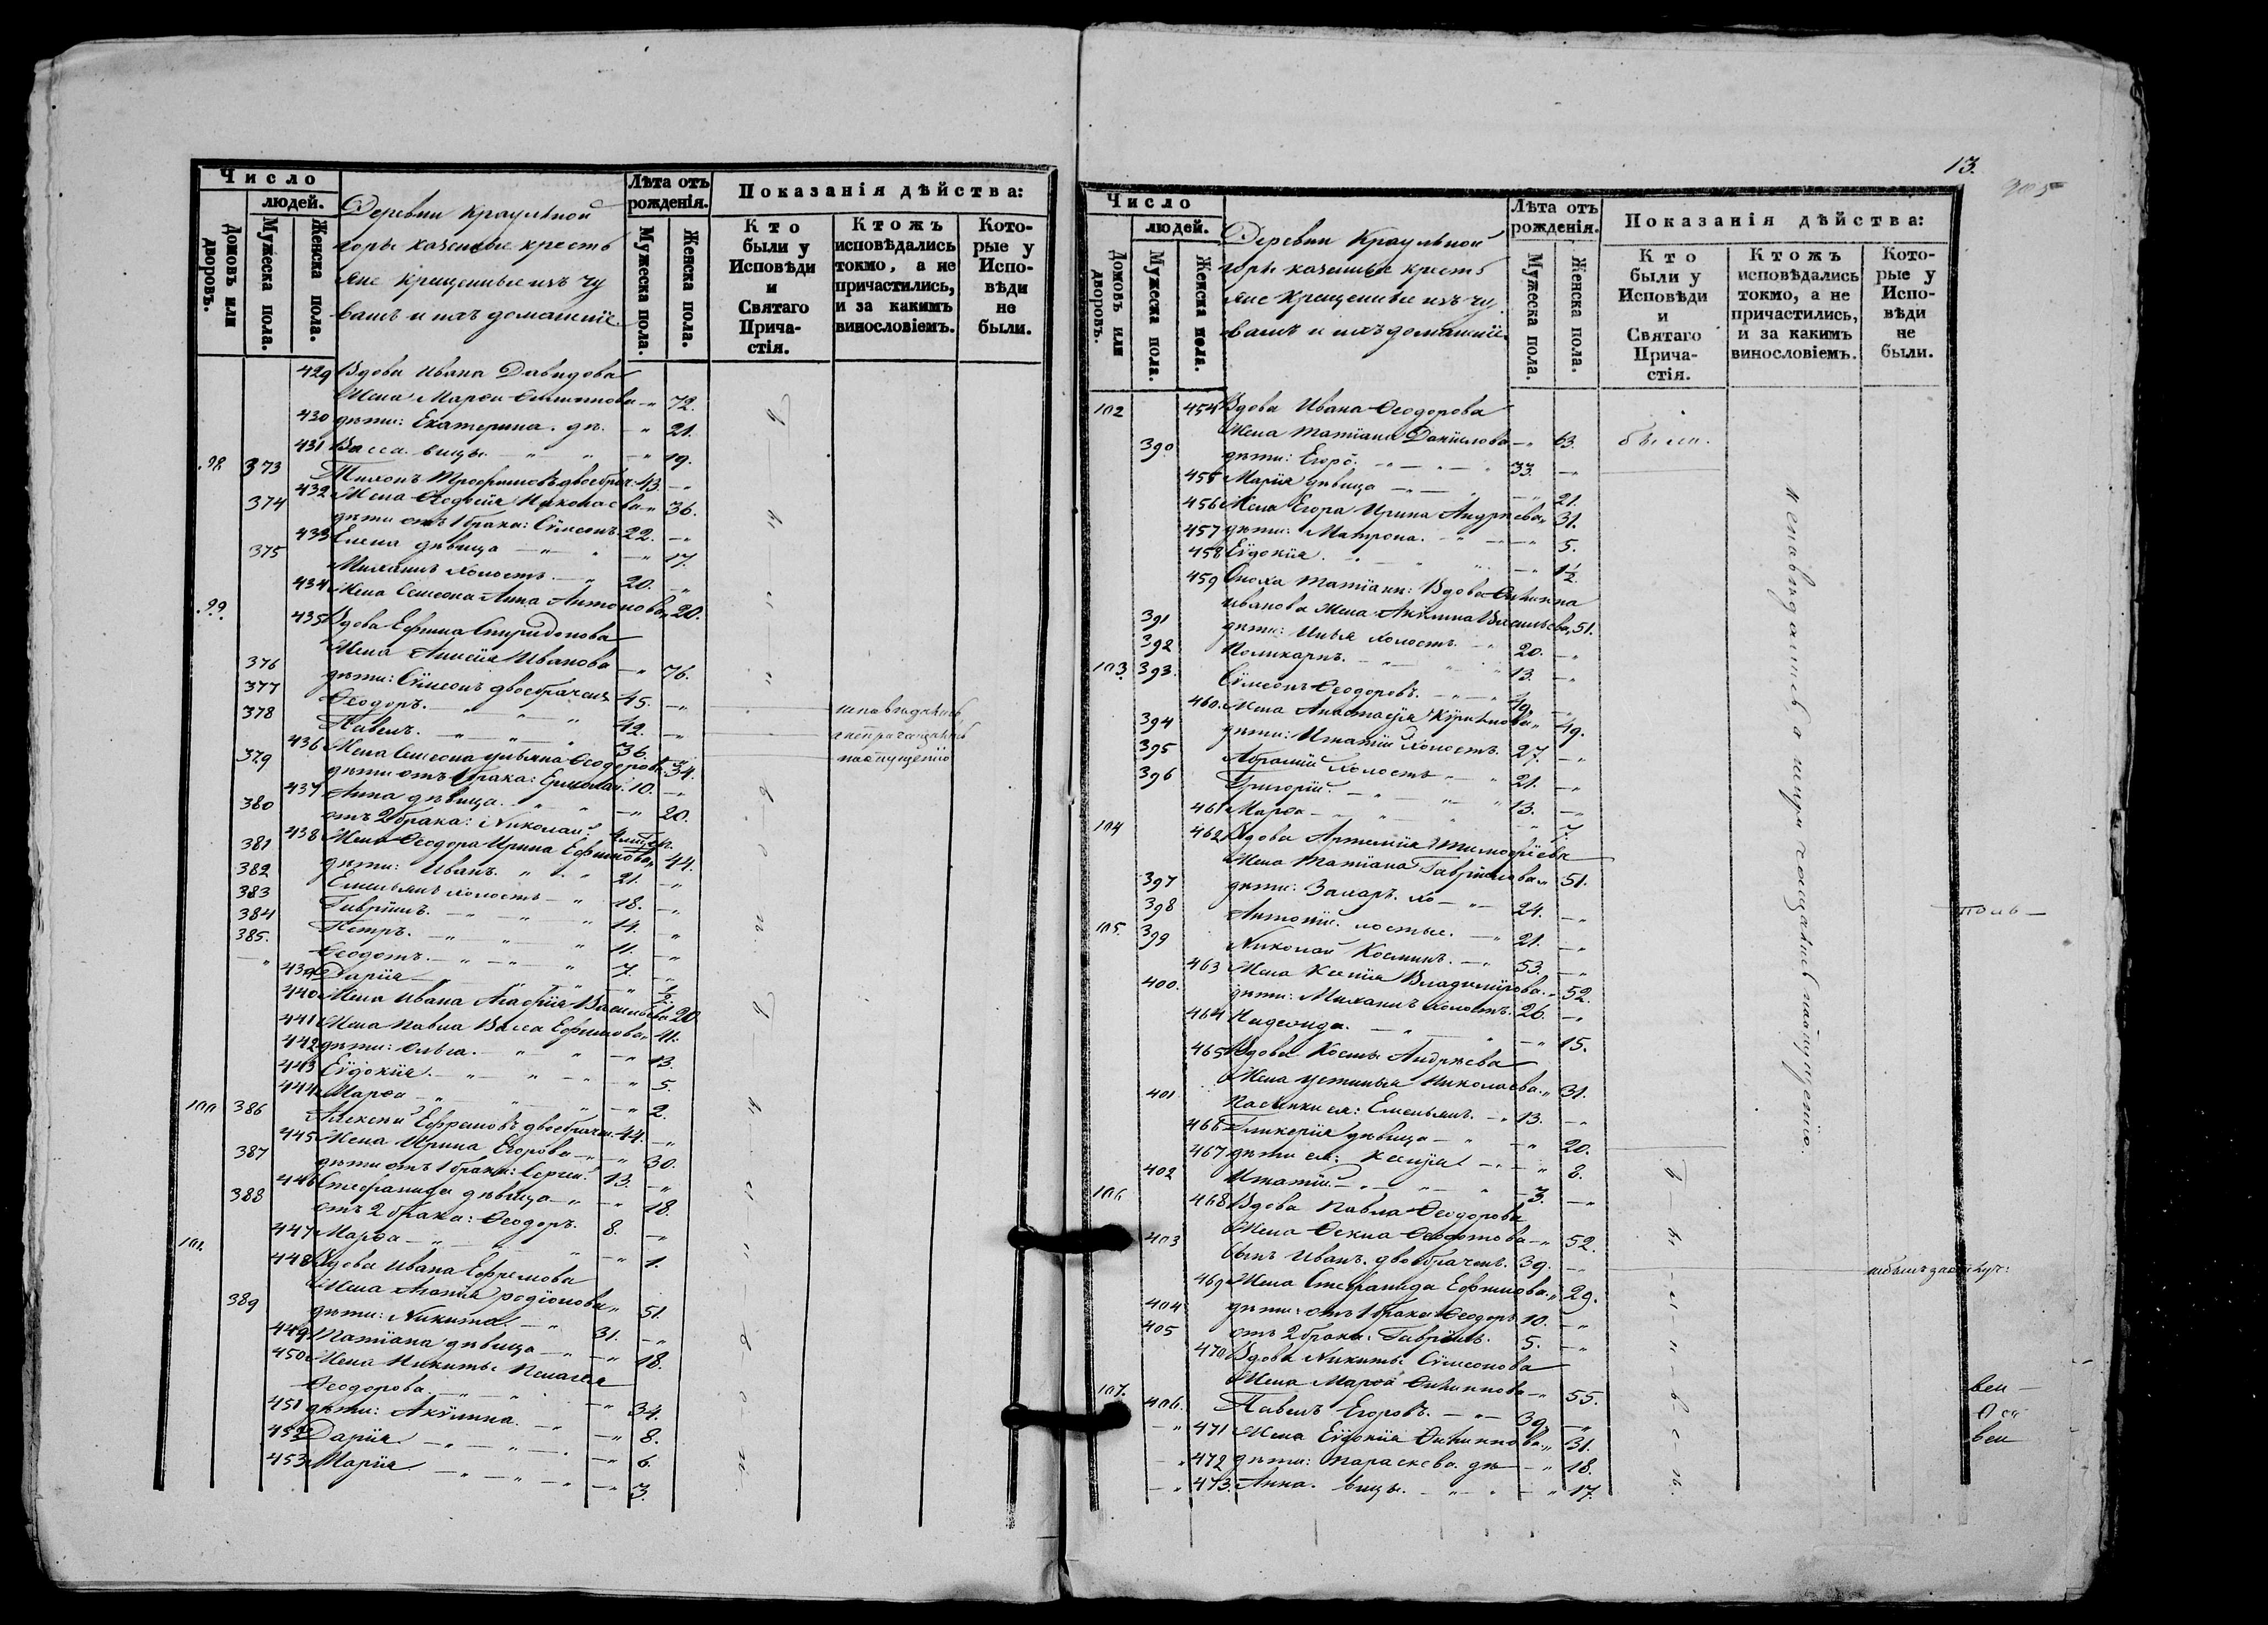 Число
людей.
Домовъ или дворовъ.
Мужеска пола.
Женска пола.
Деревни Краульной
горы казенные кресть
яне крещенные изъ чу
вашъ и ихъ домашніе.
Лѣта отъ рожденія.
Мужеска пола.
Женска пола.
Показанія дѣйства:
Кто были у Исповѣди и Святаго Причастія.
Ктожъ исповѣдались токмо, а не причастились, и за какимъ винословіемъ.
Которые у Исповѣди не были.
429 Вдова Ивана Давидова
Жена Марѳа — " 72.
430 дѣти: Екатерина. дѣ. — " 21.
431 Васса. вицы. — " — " — " 19.
98. 373 Тихонъ Трофимовъ двоебрач. 43. — "
432 Жена Ѳедосія Николаева " 36.
374 дѣти отъ 1 брака: Сѵмеонъ. 22. — "
433 Елена дѣвица — " — " 17.
375 Михаилъ холостъ. — " 20. — "
434 Жена Семеона Анна Антонова " 20.
99. 435 Вдова Ефима Спиридонова
Жена Иванова — " 76.
376 дѣти: Сѵмеонъ двоебрачен. 45. — "
377 Ѳеодоръ. — " — " 42. — " исповѣдались
378 Павелъ. — " — " 36. — " а не причащались
436 Жена Семеона Ульяна Ѳеодорова " 34. по опущенію
379 дѣти отъ 1 брака: Ермолай. 10. — "
437 Анна дѣвица. — " — " 20.
380 отъ 2 брака: Николай.
438 Жена Ѳеодора Ирина Ефимова " 44.
381 дѣти: Иванъ. " — " 21. — "
382 Емельянъ холостъ — " 18. — "
383 Гавріилъ. — " — " 14. — "
384 Петръ. — " — " 11. — "
385. Ѳеодотъ. — " — " 7. — "
439 Дарія — " — " ½
440 Жена Ивана Агафія Васильева 20
441 Жена Павла Васса Ефимова " 41.
442 дѣти: Ольга. — " — " 13.
443 Еѵдокія. — " — " 5.
444 Марѳа — " — " 2.
100 386 Алексѣй Ефремовъ двоебрачен. 44. — "
445 Жена Ирина Егорова — " 30.
387 дѣти отъ 1 брака: Сергей. 13. — "
446 Стефанида дѣвица — " — " 18.
388 отъ 2 брака: Ѳеодоръ. 8. — "
447 Марѳа — " — " 1.
101. 448 Вдова Ивана Ефремова
Жена Родіонова " 51.
389 дѣти: Никита. — " 31. — "
449 Татіана дѣвица — " — " 18.
450 Жена Никиты Пелагея
Ѳеодорова. — " — " 34.
451 дѣти: Акѵлина. — " 8.
452 Дарія. — " — " 6
453 Марія — " — " 3.
13.
Число
людей.
Домовъ или дворовъ.
Мужеска пола.
Женска пола.
Деревни Краульной
горы казенные кресть
яне крещенные изъ чу
вашъ и ихъ домашніе.
Лѣта отъ рожденія.
Мужеска пола.
Женска пола.
Показанія дѣйства:
Кто были у Исповѣди и Святаго Причастія.
Ктожъ исповѣдались токмо, а не причастились, и за какимъ винословіемъ.
Которые у Исповѣди не были.
102 454 Вдова Ивана Ѳеодорова
Жена Татіана Данилова — " 63. были.
390 дѣти: Егоръ. — " — " 33. — "
455 Марія дѣвица — " — " 21.
456 Жена Егора Ирина Андреева " 31.
457 дѣти: Матрона. — " — " 5.
458 Еѵдокія. — " — " 1½
459 Сноха Татіаны: Вдова Филиппа
Иванова жена Акѵлина Васильева " 51.
391 дѣти: Илья холостъ. — " 20. — "
392 Поликарпъ. — " — " 13. — "
103. 393. Сѵмеонъ Ѳеодоровъ. — " 49. — "
460. Жена Анастасія Кирилова " 49.
394 дѣти: Игнатій холостъ. 27. — "
395 Абрамій холостъ — " 21. — "
396 Григорій. — " — " 13. — "
461 Марѳа — " — " 7.
104 462 Вдова Артемія Тимоѳеева
Жена Татіана Гавріилова " 51.
397 дѣти: Захаръ. хо — " 24. — "
398 Антоній. лостые. — " 21. — "
105. 399 Николай Косминъ. — " 53. — "
463 Жена Ксенія Владимірова. " 52.
400. дѣти: Михаилъ холостъ. 26. — "
464 — " — " 15.
465 Вдова Космы Андреева
Жена Устинья Николаева. " 31.
401 Пасынки ея: Емельянъ. — " 13. — "
466 Гликерія дѣвица — " — " 20.
467 дѣти ея: Ксенія — " — " 8.
402 Игнатій. — " — " 3. — "
106. 468 Вдова Павла Ѳеодорова
Жена Ѳекла Ѳедотова — " 52.
403 Сынъ Иванъ двоебраченъ. 39. — "
469 Жена Стефанида Ефимова. " 29.
404 дѣти: отъ 1 брака Ѳеодоръ 10. — "
405 отъ 2 брака: Гавріилъ. 5. — "
470 Вдова Никиты Сѵмеонова
Жена Марѳа Филиппова — " 55.
107. 406. Павелъ Егоровъ. — " 39. — "
— " 471 Жена Еѵдокія Филиппова " 31.
— " 472 дѣти: Параскева. дѣ — " 18.
— " 473. Анна. вицы. — " — " 17.
исповѣдались а не причащались по опущенію.